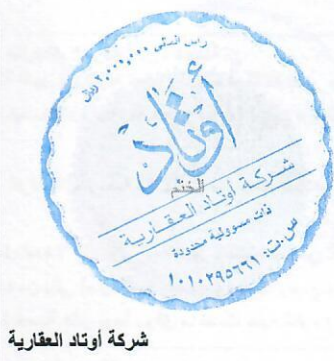 رأس المال ٢,٠٠٠,٠٠٠ ريال
أوتاد
الختم
شركة أوتاد العقارية
ذات مسؤولية محدودة
س.ت: ١٠١٠٢٩٥٦٦١
شركة أوتاد العقارية